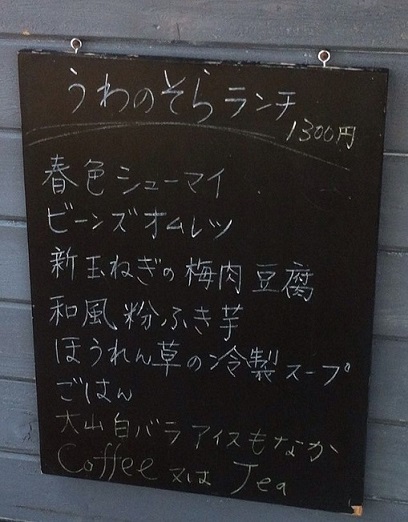 うわのそらランチ
1300円
春色シューマイ
ビーンズオムレツ
新玉ねぎの梅肉豆腐
和風粉ふき芋
ほうれん草の冷製スープ
ごはん
大山白バラアイスもなか
Coffee 又は Tea